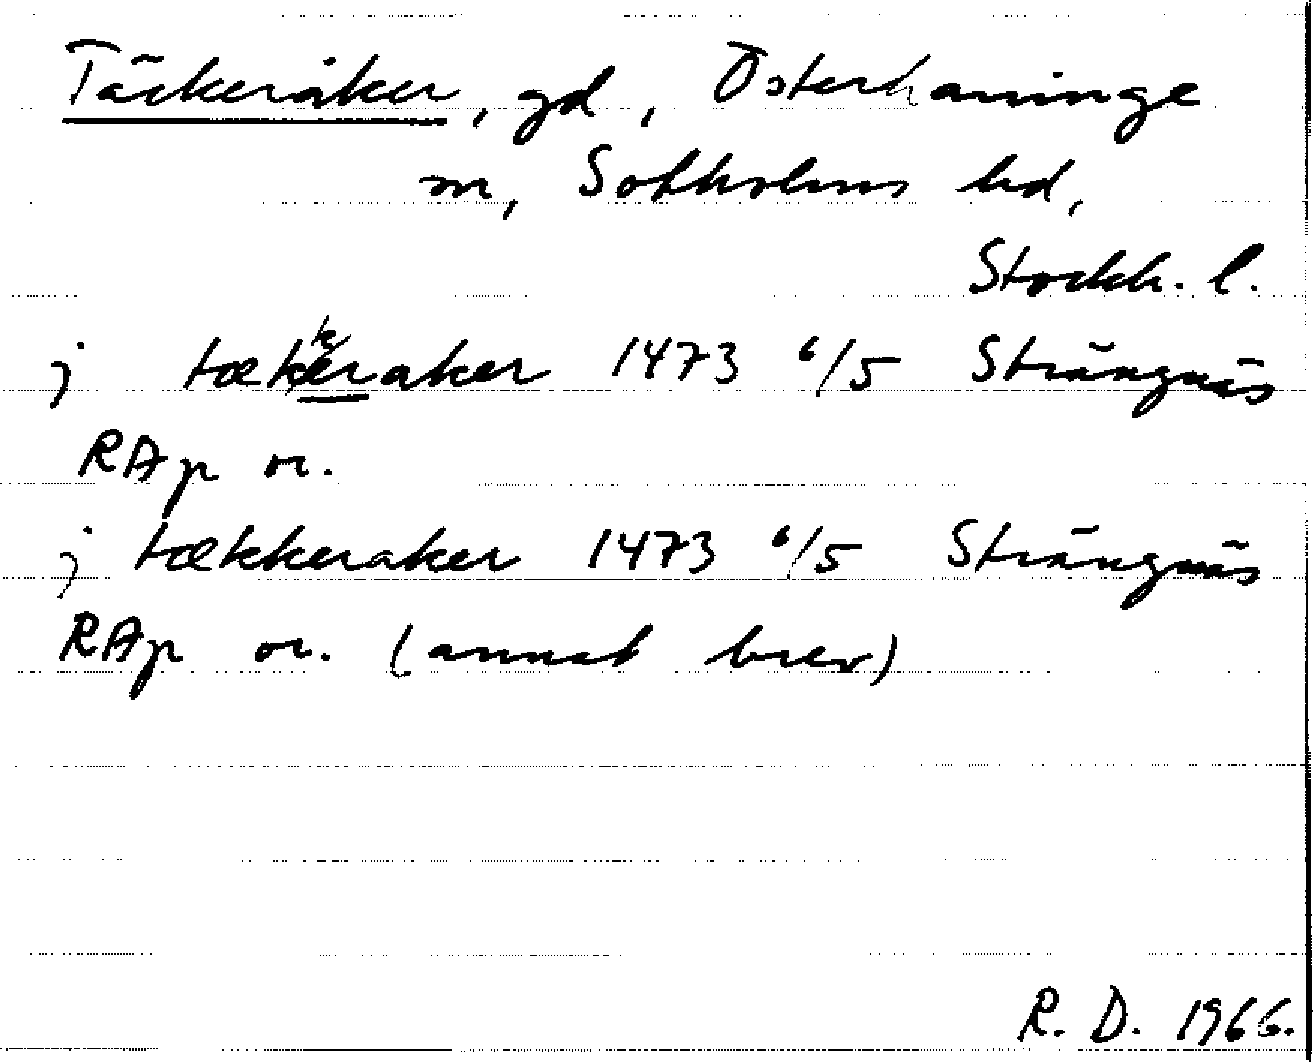 Täckeråker, gd, Österhaninge
sn, Sotholms hd,
Stockh. l.
j tækkeraker 1473 6/5 Strängnäs
RAp or.
j tækkeraker 1473 6/5 Strängnäs
RAp or. (annat brev)
R. D. 1966.